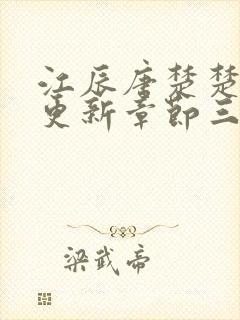 江辰唐楚楚
更新章节三
梁武帝